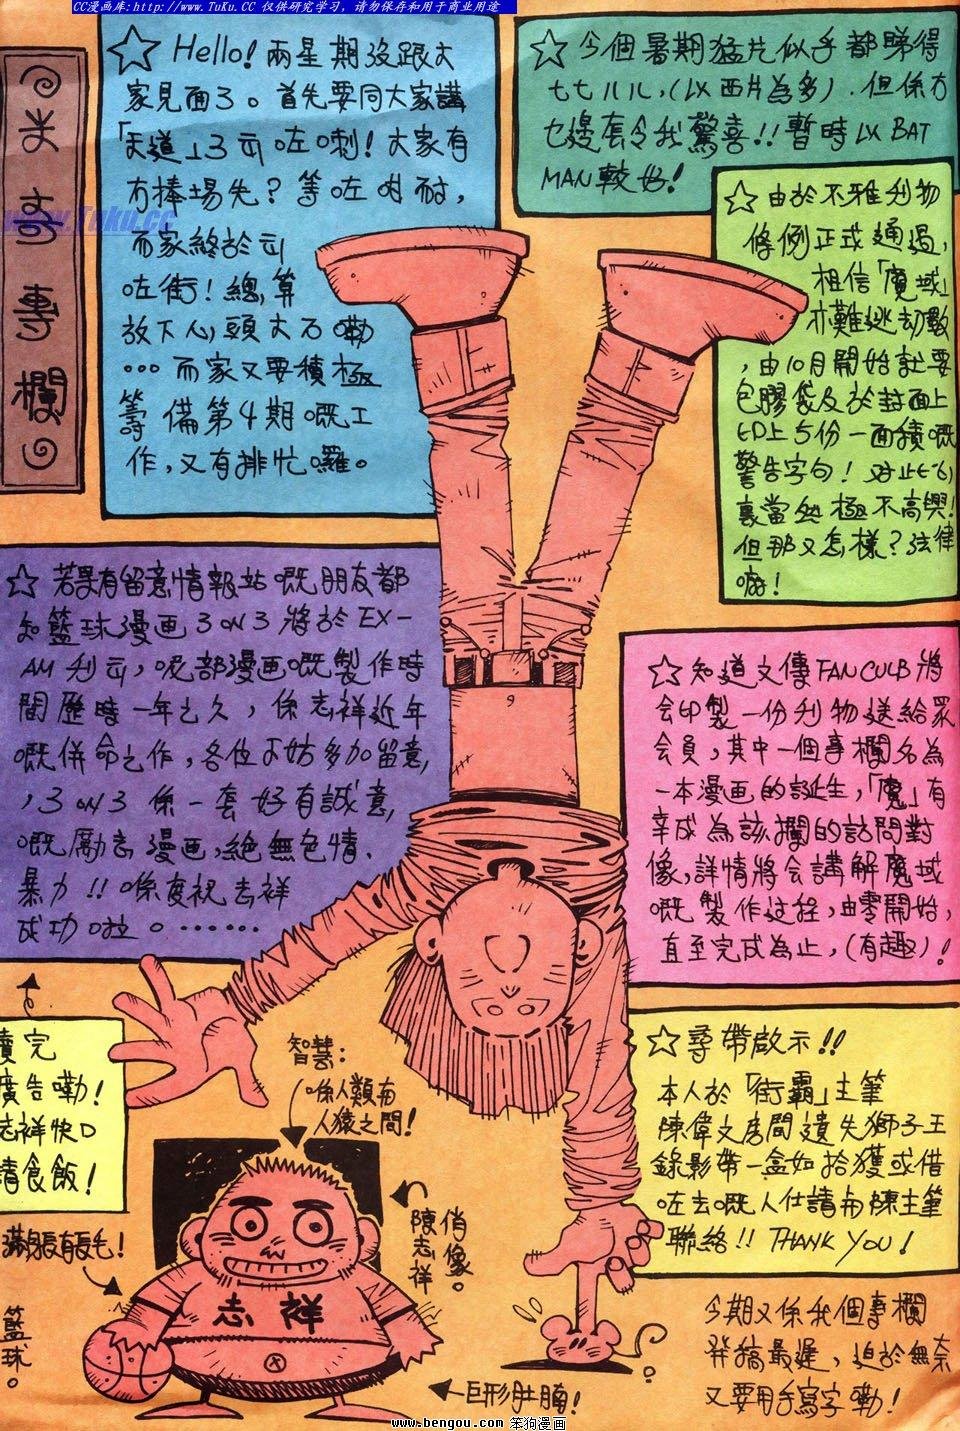 CC漫画库:http://www.TuKu.CC 仅供研究学习，请勿保存和用于商业用途
專欄
www.Tuku.cc
☆Hello! 兩星期沒跟大
家見面了。首先要同大家講
「天道」3 云咗喇! 大家有
冇捧場先? 等咗咁耐,
而家終於云
咗街! 總算
放下心頭大石嘞
…而家又要積極
籌備第4期嘅工
作,又有排忙囉。
☆今個暑期猛片似乎都睇得
七七八八,(以西片為多). 但係冇
乜邊套令我驚喜!! 暫時以BAT
MAN較好!
☆由於不雅刋物
條例正式通過,
相信「魔域」
亦難逃劫數
,由10月開始就要
包膠袋及於封面上
印上5份一面積嘅
警告字句! 對此
裏當然極不高興!
但那又怎樣? 法律
嘛!
☆若果有留意情報站嘅朋友都
知籃球漫画3 ON 3將於EX-
AM刋云,呢部漫画嘅製作時
間歷時一年之久,係志祥近年
嘅併命之作,各位不妨多加留意,
,3 ON 3 係一套好有誠意
嘅勵志漫画,絕無色情、
暴力!! 喺度祝志祥
成功啦。……
☆知道文傳FAN CULB將
会印製一份刋物送給眾
会員,其中一個專欄名為
一本漫画的誕生,「魔」有
幸成為該攔的訪問對
像,詳情將会講解魔域
嘅製作过程,由零開始,
直至完成為止,(有趣)!
讀完
廣告嘞!
志祥快D
請食飯!
智慧:
喺人類有
人猿之間!
☆尋帶啟示!!
本人於「街霸」主筆
陳偉文房間遺失獅子王
錄影帶一盒如拾獲或借
咗去嘅人仕請布陳主筆
聯絡!! THANK YOU!
陳志祥
俏像。
志祥
籃球。
巨形肚腩!
?
今期又係我個專欄
發稿最遲,迫於無奈
又要用手寫字嘞!
www.bengou.com 笨狗漫画